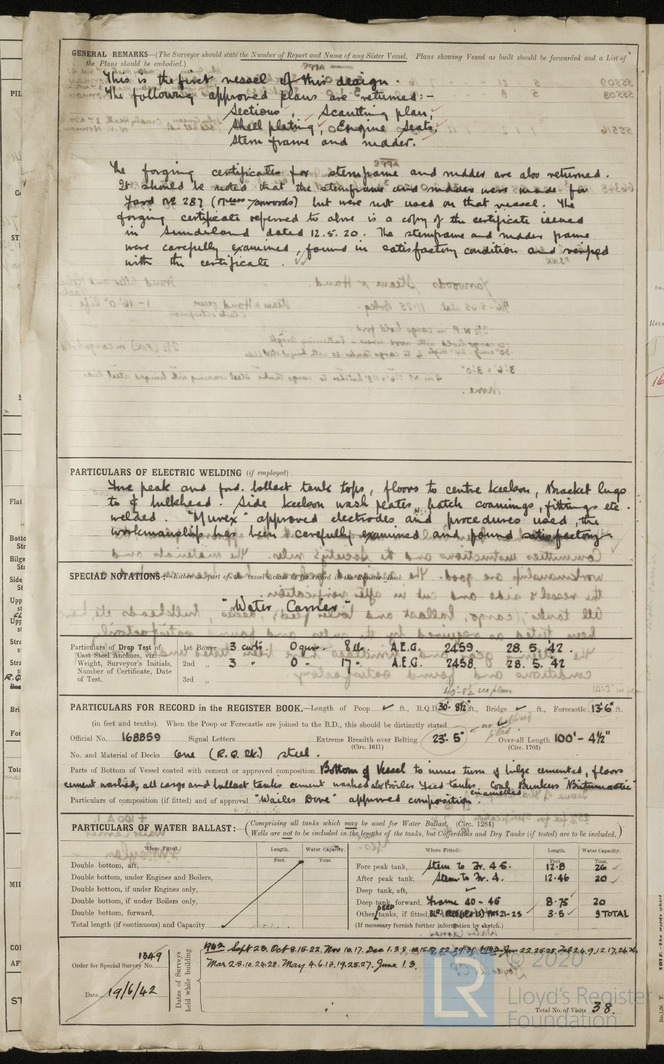 GENERAL REMARKS—(The Surveyor should state the Number of Report and Name of any Sister Vessel. Plans showing Vessel as built should be forwarded and a List of
the Plans should be embodied.)
This is the first vessel of this design.
The following approved plans are returned:-
Sections, Scantling plan,
Shell plating, Engine Seats,
Stem frame and rudder.
The forging certificates for sternframe and rudder are also returned.
It should be noted that the sternframe and rudder were made for
Yard No 287 but were not used on that vessel. The
forging certificate referred to above is a copy of the certificate issued
in Sunderland dated 12.5.20. The sternframe and rudder frame
were carefully examined, found in satisfactory condition and verified
with the certificate.
PARTICULARS OF ELECTRIC WELDING (if employed)
Fore peak and ford. ballast tank tops, floors to centre keelson, Bracket lugs
to ℄ bulkhead. Side keelson wash plates, hatch coamings, fittings etc.
welded. "Murex" approved electrodes and procedures used, the
workmanship has been carefully examined and found satisfactory.
SPECIAL NOTATIONS:—
"Water Carrier"
Particulars of Drop Test of Cast Steel Anchors, viz:—
Weight, Surveyor's Initials, Number of Certificate, Date of Test.
1st Bower 3 cwts 0 qrs. 8 lb. A.E.G. 2459 28.5.42.
2nd „ 3 „ 0 „ 17 „ A.E.G. 2458 28.5.42
3rd „
PARTICULARS FOR RECORD in the REGISTER BOOK.—Length of Poop ft., R.Q.D. 30'-8½" ft., Bridge ft., Forecastle 13'6" ft.
(in feet and tenths). When the Poop or Forecastle are joined to the B.D., this should be distinctly stated
Official No. 168859 Signal Letters Extreme Breadth over Belting 23.5' Over-all Length 100'-4½"
(Circ. 1611) (Circ. 1703)
No. and Material of Decks One (R.Q.Dk.) steel.
Parts of Bottom of Vessel coated with cement or approved composition Bottom of Vessel to inner turn of bilge cemented, floors
cement washed, all cargo and ballast tanks cement washed also Boiler Feed tanks. Coal Bunkers "Bitumastic"
enamelled
Particulars of composition (if fitted) and of approval "Wailes Dove" approved composition.
PARTICULARS OF WATER BALLAST:— (Comprising all tanks which may be used for Water Ballast. (Circ. 1284)
Wells are not to be included in the lengths of the tank, but Cofferdams and Dry Tanks (if tested) are to be included.)
Where Fitted. Length. Water Capacity. Where Fitted. Length. Water Capacity.
Feet. Tons. Feet. Tons.
Double bottom, aft, Fore peak tank, Stem to Fr. 45. 12.8 26
Double bottom, under Engines and Boilers, After peak tank, Stern to Fr. 4. 12.46 20
Double bottom, if under Engines only, Deep tank, aft,
Double bottom, if under Boilers only, Deep tank, forward, Frame 40-45 8.75 20
Double bottom, forward, Other tanks, if fitted, 3.5 9 TOTAL
Total length (if continuous) and Capacity (If necessary furnish further information by sketch.)
Order for Special Survey No. 1349
Date 19/6/42
Dates of Surveys held while building
Mar 2.5.10.24.28. May 4.6.13.19.25.27. June 1.3.
Total No. of Visits 38.
LR
© 2020
Lloyd's Register
Foundation